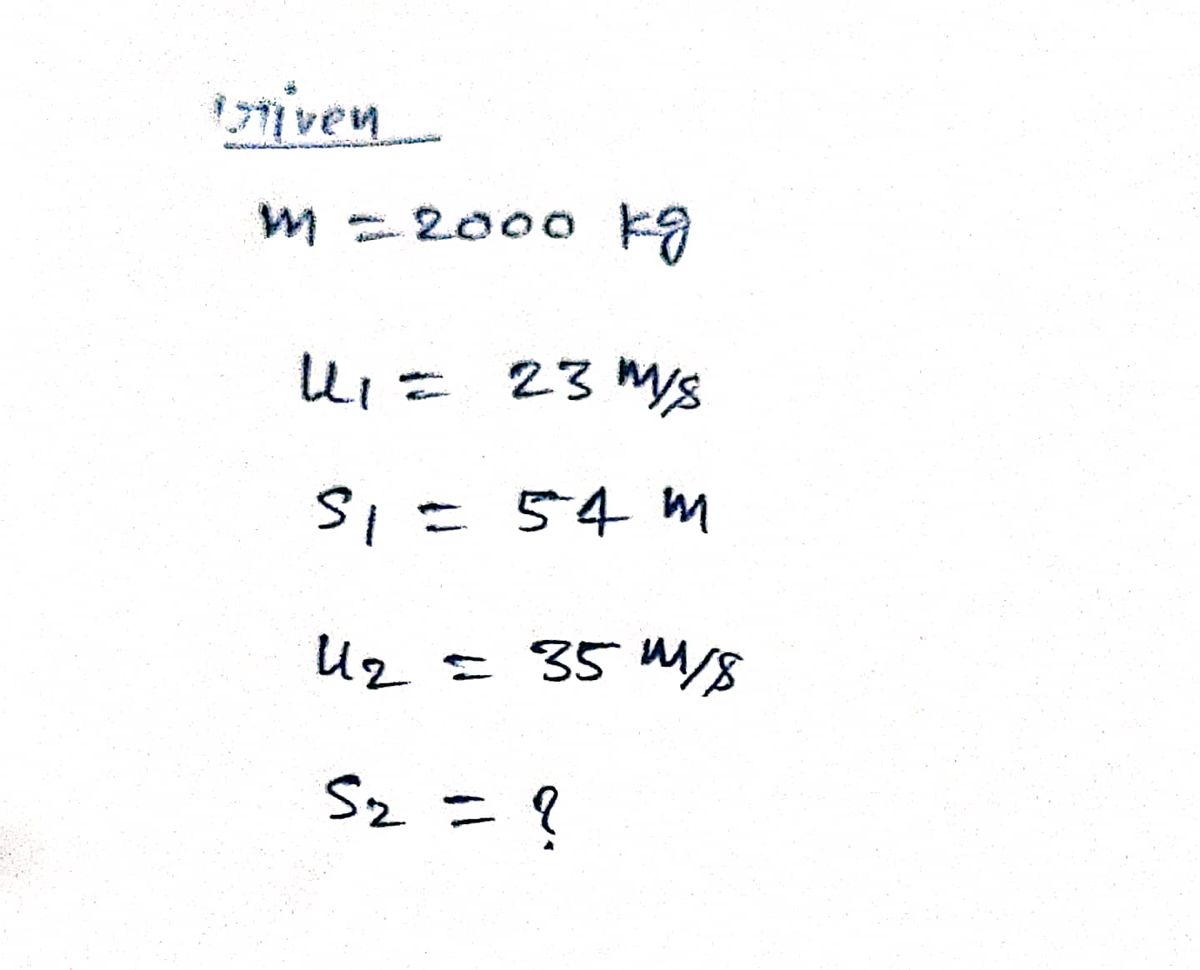 Given
m = 2000 kg
u₁ = 23 m/s
S₁ = 54 m
u₂ = 35 m/s
S₂ = ?